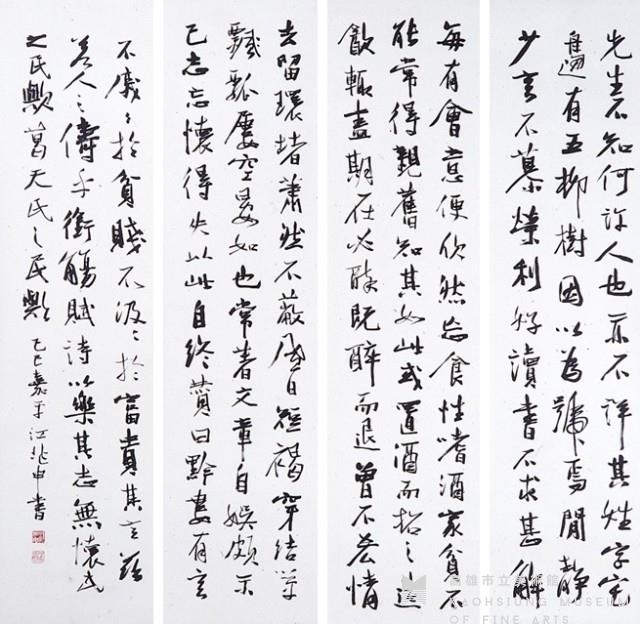 先生不知何許人也亦不詳其姓字宅
邊有五柳樹因以為號焉閒靜
少言不慕榮利好讀書不求甚解
每有會意便欣然忘食性嗜酒家貧不
能常得親舊知其如此或置酒而招之造
飲輒盡期在必醉既醉而退曾不吝情
去留環堵蕭然不蔽風日短褐穿結簞
瓢屢空晏如也常著文章自娛頗示
己志忘懷得失以此自終贊曰黔婁有言
不戚〻於貧賤不汲〻於富貴其言茲
若人之儔乎銜觴賦詩以樂其志無懷氏
之民歟葛天氏之民歟 己巳嘉平江兆申書
高雄市立美術館
KAOHSIUNG MUSEUM
OF FINE ARTS